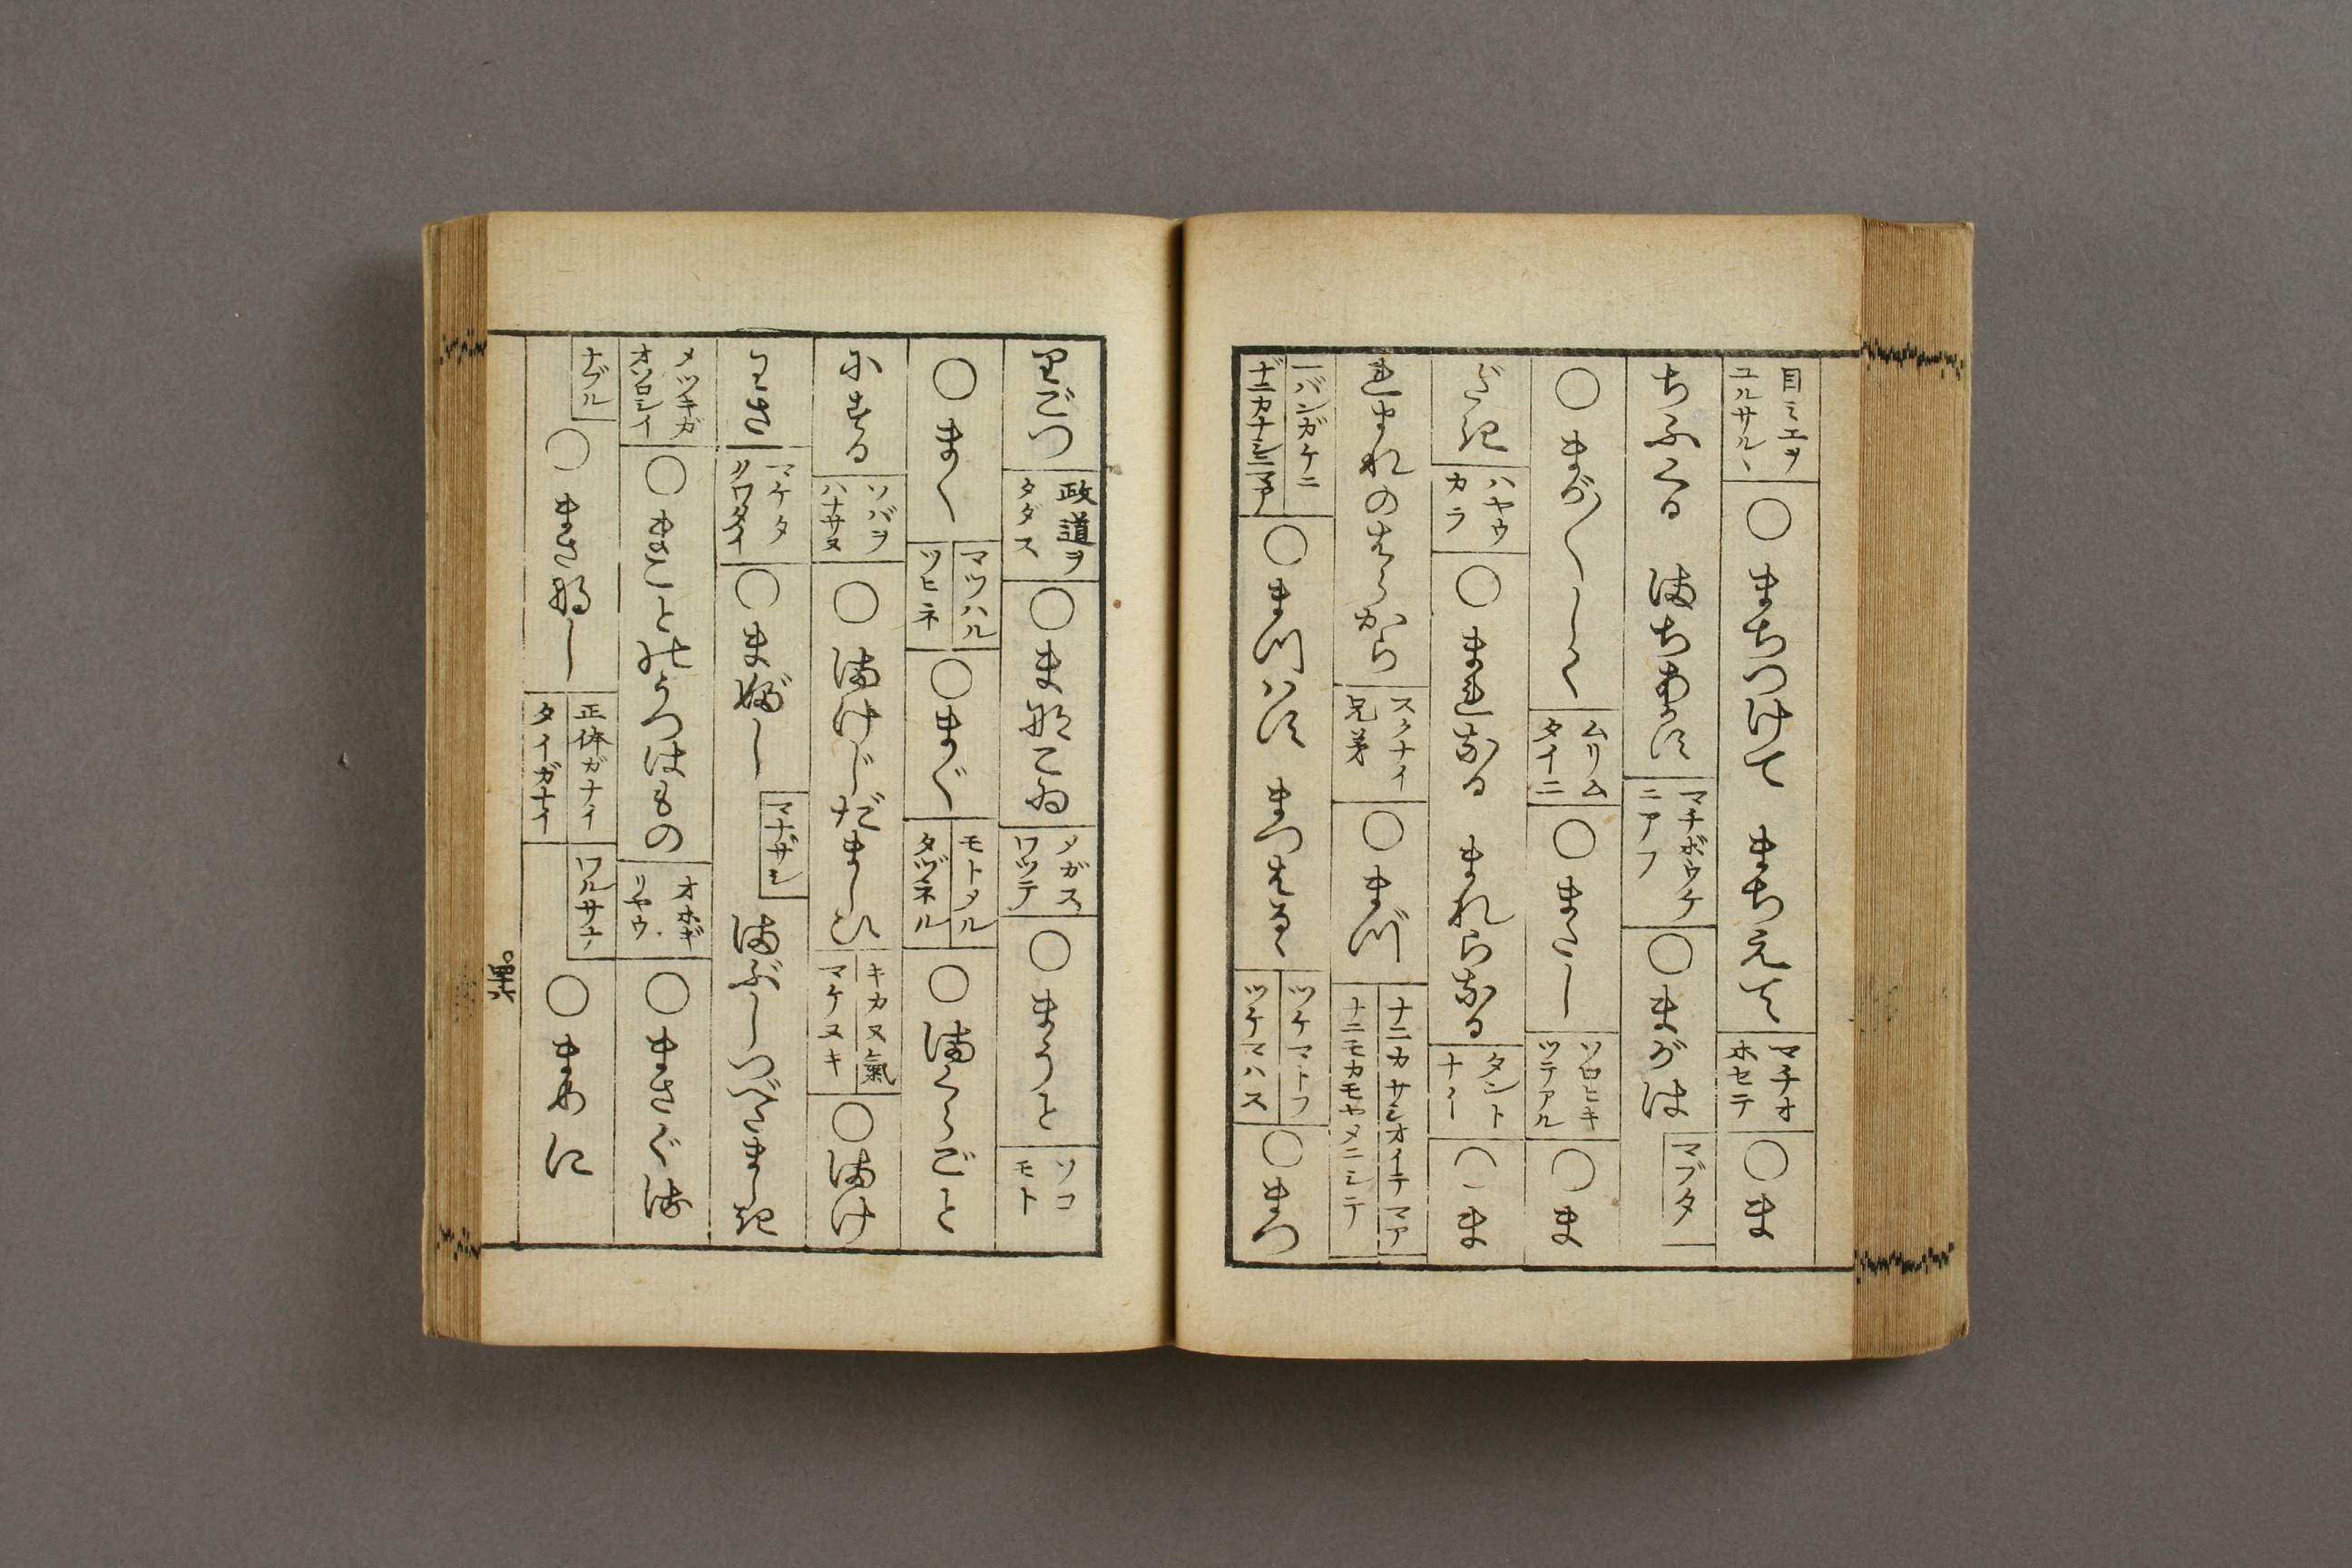 目ミエヲ
ユルサルヽ
○まちつけて まちえて
マチオ
ホセテ
○ま
ちふくる まちわたす
マチボウケ
ニアフ
○まがは
マブタ
○まが〳〵しく
ムリム
タイニ
○まさし
ソロヒキ
ツテアル
○ま
だき
ハヤウ
カラ
○まれなる まれらなる
タント
ナイ
○ま
れまれのはらから
スクナイ
兄弟
○まづ
ナニカサシオイテマア
ナニモカモヤメニシテ
一バンガケニ
ナニカナシニマア
○まつはす まつはる
ツケマトフ
ツケマハス
○まつ
りごつ
政道ヲ
タダス
○まなこゐ
メガス
ワツテ
○まうと
ソコ
モト
○まく
マツハル
ツヒネ
○まぐ
モトメル
タヅネル
○まくらごと
ソバヲ
ハナサヌ
○まけじだましひ
キカヌ氣
マケヌキ
○まけ
わざ
マケタ
クワタイ
○まぶし
マナザシ
まぶしつべたましき
メツキガ
オソロシイ
○まことのうつはもの
オホギ
リヤウ
○まさぐる
ナブル
○まさなし
正体ガナイ
タイガナイ
ワルサナ
○まめに